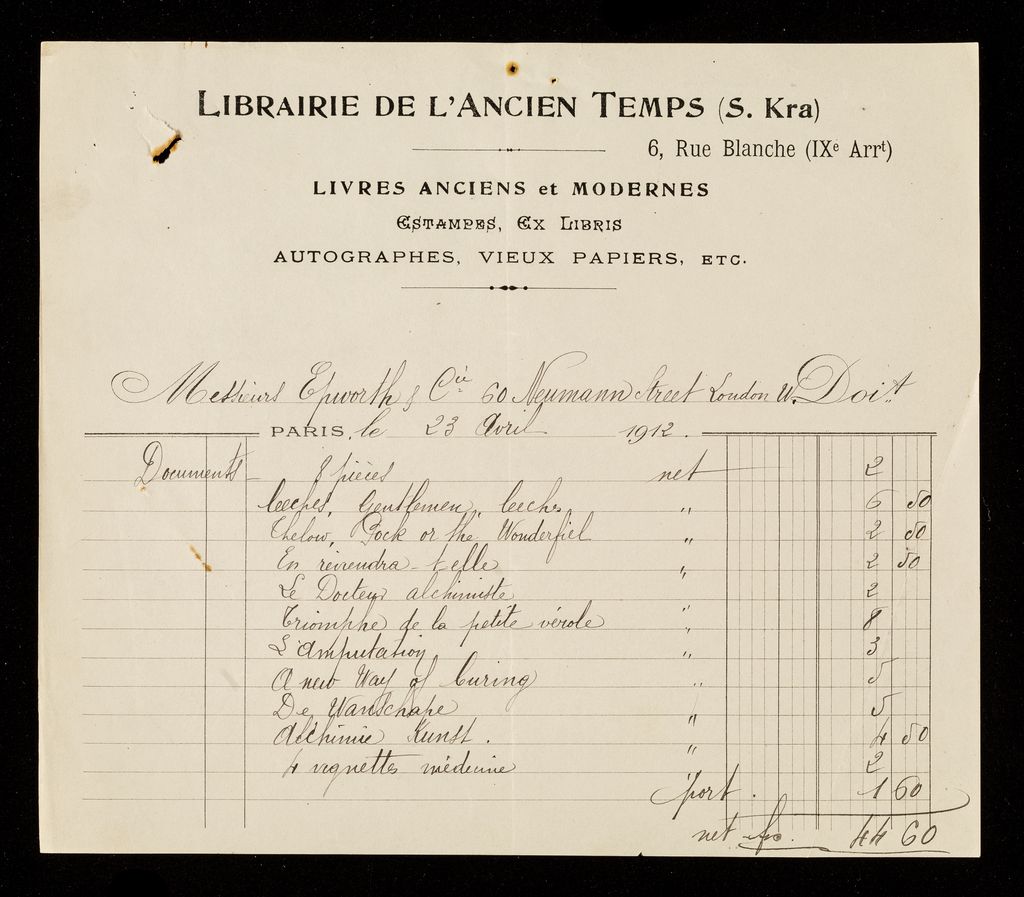 LIBRAIRIE DE L'ANCIEN TEMPS (S. Kra)
6, Rue Blanche (IXe Arrt)
LIVRES ANCIENS et MODERNES
ESTAMPES, EX LIBRIS
AUTOGRAPHES, VIEUX PAPIERS, ETC.
Messieurs Epworth & Cie 60 Neumann Street London W. Doit
PARIS, le 23 Avril 1912.
Documents 8 pièces net 2
leeches, Gentlemen, leeches " 6 50
Thelow, Pock or the Wonderfiel " 2 50
En reviendra-t-elle " 2 50
Le Docteur alchimiste 2
Triomphe de la petite vérole " 8
L'amputation " 3
A new Way of Curing " 5
De Wanschape " 5
Alchimie Kunst. " 4 50
4 vignettes médecine 2
port. 1 60
net frs. 44 60